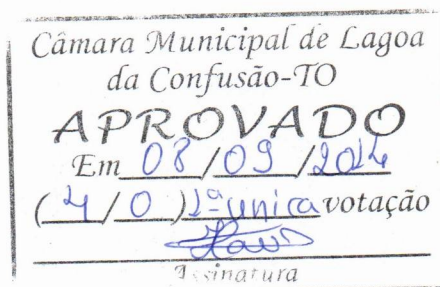 Câmara Municipal de Lagoa
da Confusão-TO
APROVADO
Em 08/09/2014
(4/0) 1ª unica votação
Assinatura